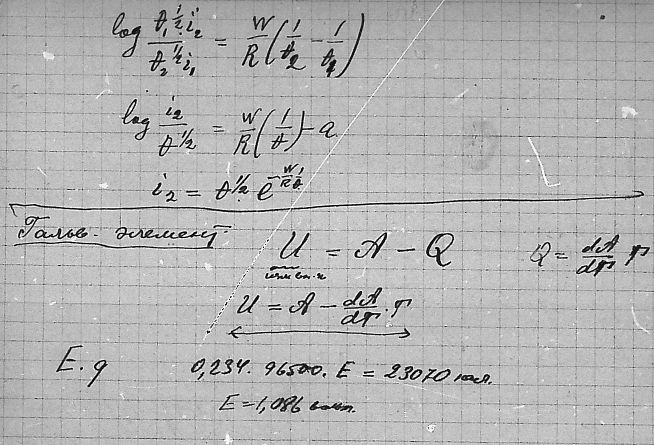 log θ₁^½ i₂ / θ₂^½ i₁ = W/R (1/θ₂ − 1/θ₁)
log i₂ / θ^1/2 = W/R (1/θ) − a
i₂ = θ^1/2 e^−W/R 1/θ
Гальв. элемент
U = A − Q Q = dA/dT T
U = A − dA/dT · T
E. q 0,234. 96500. E = 23070 кал.
E = 1,086 вольт.